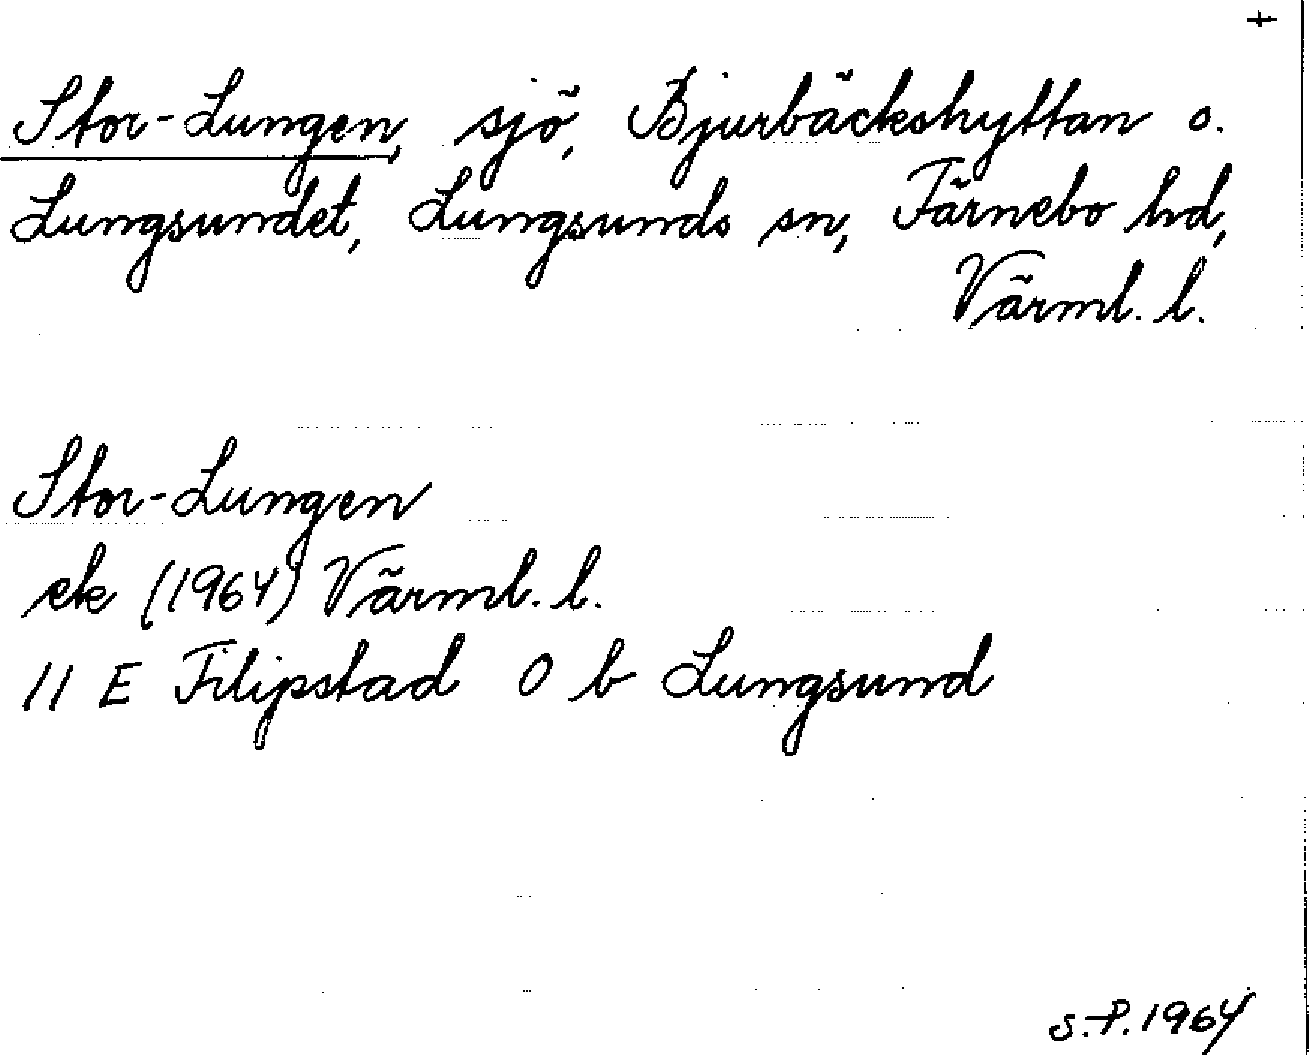 +
Stor-Lungen, sjö, Bjurbäckshyttan o.
Lungsundet, Lungsunds sn, Färnebo hd,
Värml. l.
Stor-Lungen
ek (1964) Värml. l.
11 E Filipstad 0 b Lungsund
S.P. 1964